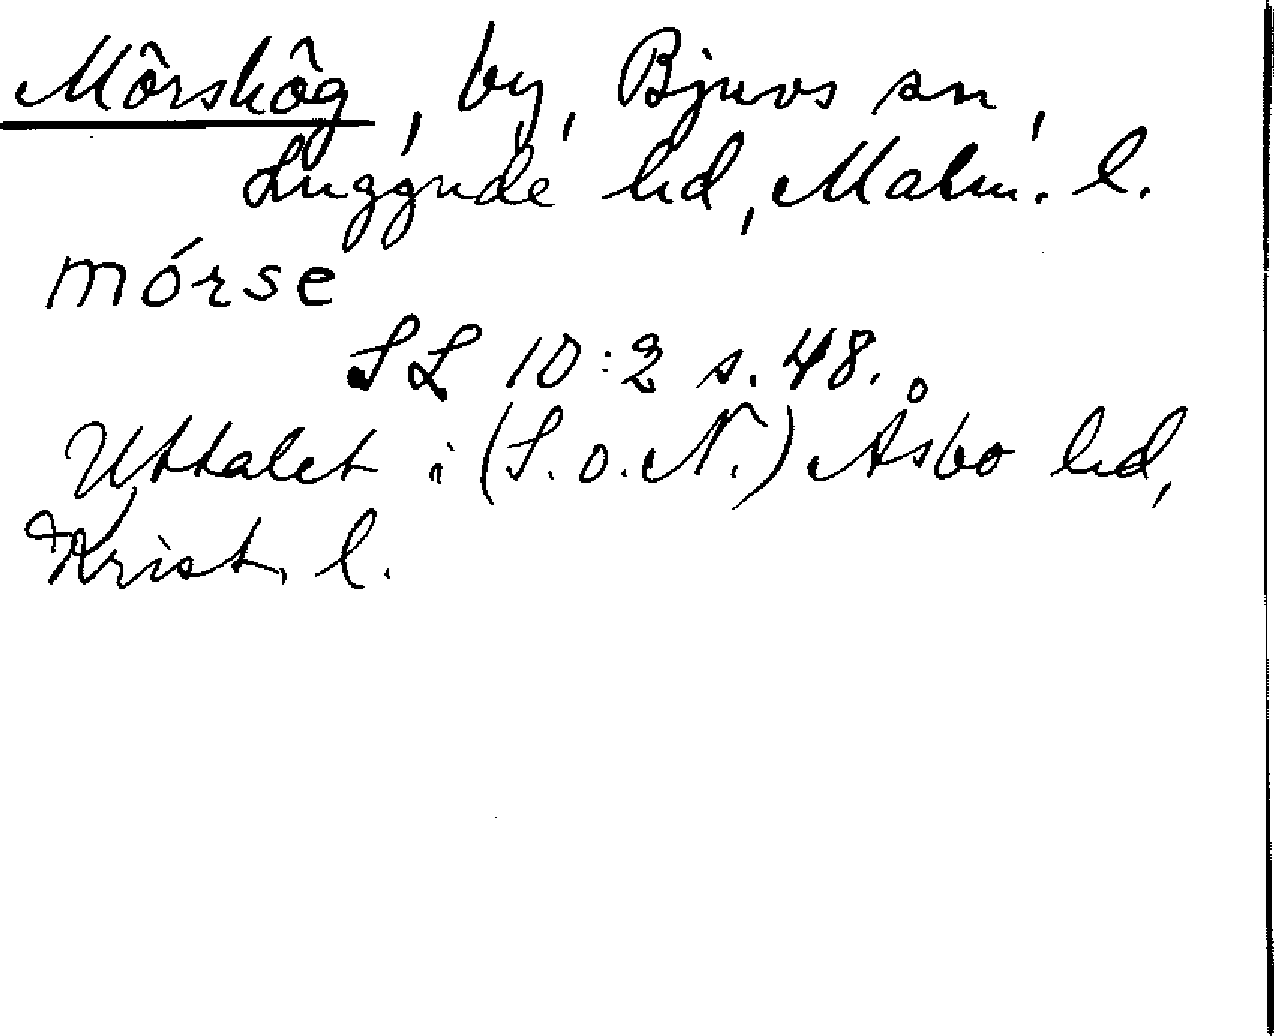 Môrskôg, by, Bjuvs sn,
Luggude hd, Malm. l.
mórse
SL 10:2 s. 48.
Uttalet i (S. o. N.) Åsbo hd,
Krist. l.